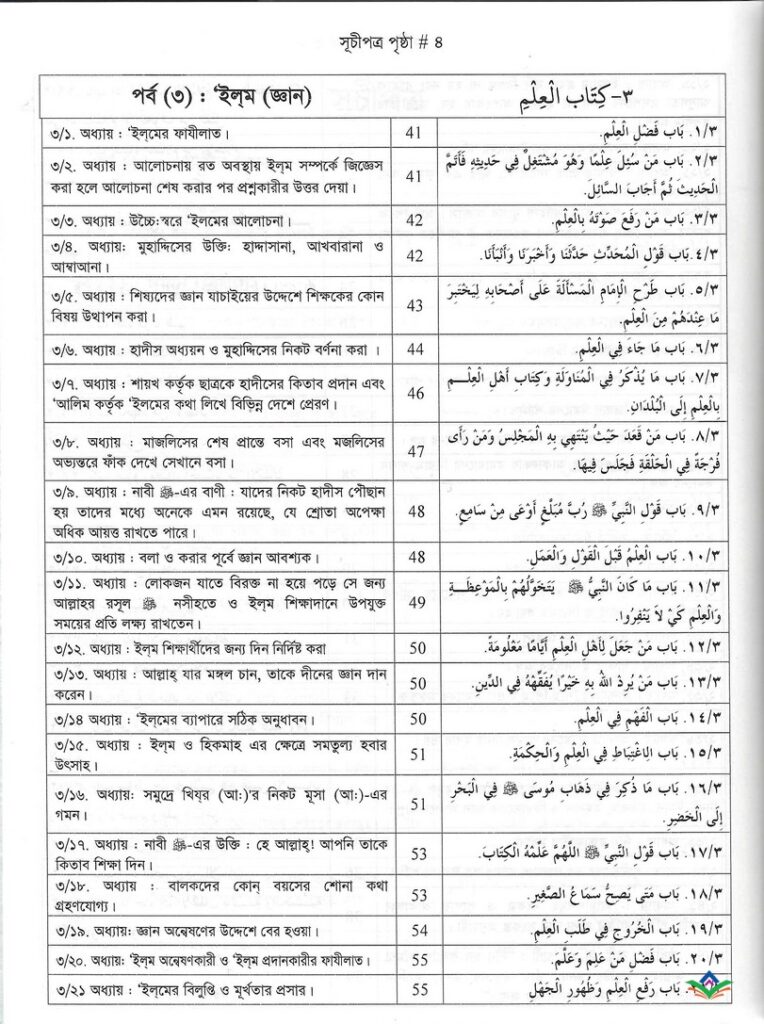 সূচীপত্র পৃষ্ঠা # ৪
পর্ব (৩) : ‘ইল্‌ম (জ্ঞান) ٣- كِتَاب الْعِلْمِ
৩/১. অধ্যায় : ‘ইল্‌মের ফাযীলাত। 41 ١/٣. بَاب فَضْلِ الْعِلْمِ.
৩/২. অধ্যায় : আলোচনায় রত অবস্থায় ইল্‌ম সম্পর্কে জিজ্ঞেস
করা হলে আলোচনা শেষ করার পর প্রশ্নকারীর উত্তর দেয়া। 41 ٢/٣. بَاب مَنْ سُئِلَ عِلْمًا وَهُوَ مُشْتَغِلٌ فِي حَدِيثِهِ فَأَتَمَّ
الْحَدِيثَ ثُمَّ أَجَابَ السَّائِلَ.
৩/৩. অধ্যায় : উচ্চৈঃস্বরে ‘ইলমের আলোচনা। 42 ٣/٣. بَاب مَنْ رَفَعَ صَوْتَهُ بِالْعِلْمِ.
৩/৪. অধ্যায়: মুহাদ্দিসের উক্তি: হাদ্দাসানা, আখবারানা ও
আম্বাআনা। 42 ٤/٣. بَاب قَوْلِ الْمُحَدِّثِ حَدَّثَنَا وَأَخْبَرَنَا وَأَنْبَأَنَا.
৩/৫. অধ্যায় : শিষ্যদের জ্ঞান যাচাইয়ের উদ্দেশে শিক্ষকের কোন
বিষয় উত্থাপন করা। 43 ٥/٣. بَاب طَرْحِ الإِمَامِ الْمَسْأَلَةَ عَلَى أَصْحَابِهِ لِيَخْتَبِرَ
مَا عِنْدَهُمْ مِنَ الْعِلْمِ.
৩/৬. অধ্যায় : হাদীস অধ্যয়ন ও মুহাদ্দিসের নিকট বর্ণনা করা । 44 ٦/٣. بَاب مَا جَاءَ فِي الْعِلْمِ.
৩/৭. অধ্যায় : শায়খ কর্তৃক ছাত্রকে হাদীসের কিতাব প্রদান এবং
‘আলিম কর্তৃক ‘ইলমের কথা লিখে বিভিন্ন দেশে প্রেরণ। 46 ٧/٣. بَاب مَا يُذْكَرُ فِي الْمُنَاوَلَةِ وَكِتَابِ أَهْلِ الْعِلْمِ
بِالْعِلْمِ إِلَى الْبُلْدَانِ.
৩/৮. অধ্যায় : মাজলিসের শেষ প্রান্তে বসা এবং মজলিসের
অভ্যন্তরে ফাঁক দেখে সেখানে বসা। 47 ٨/٣. بَاب مَنْ قَعَدَ حَيْثُ يَنْتَهِي بِهِ الْمَجْلِسُ وَمَنْ رَأَى
فُرْجَةً فِي الْحَلْقَةِ فَجَلَسَ فِيهَا.
৩/৯. অধ্যায় : নাবী ﷺ-এর বাণী : যাদের নিকট হাদীস পৌছান
হয় তাদের মধ্যে অনেকে এমন রয়েছে, যে শ্রোতা অপেক্ষা
অধিক আয়ত্ত রাখতে পারে। 48 ٩/٣. بَاب قَوْلِ النَّبِيِّ ﷺ رُبَّ مُبَلَّغٍ أَوْعَى مِنْ سَامِعٍ.
৩/১০. অধ্যায় : বলা ও করার পূর্বে জ্ঞান আবশ্যক। 48 ١٠/٣. بَاب الْعِلْمُ قَبْلَ الْقَوْلِ وَالْعَمَلِ.
৩/১১. অধ্যায় : লোকজন যাতে বিরক্ত না হয়ে পড়ে সে জন্য
আল্লাহর রসূল ﷺ নসীহতে ও ইল্‌ম শিক্ষাদানে উপযুক্ত
সময়ের প্রতি লক্ষ্য রাখতেন। 49 ١١/٣. بَاب مَا كَانَ النَّبِيُّ ﷺ يَتَخَوَّلُهُمْ بِالْمَوْعِظَةِ
وَالْعِلْمِ كَيْ لاَ يَنْفِرُوا.
৩/১২. অধ্যায় : ইল্‌ম শিক্ষার্থীদের জন্য দিন নির্দিষ্ট করা 50 ١٢/٣. بَاب مَنْ جَعَلَ لِأَهْلِ الْعِلْمِ أَيَّامًا مَعْلُومَةً.
৩/১৩. অধ্যায় : আল্লাহ্ যার মঙ্গল চান, তাকে দীনের জ্ঞান দান
করেন। 50 ١٣/٣. بَاب مَنْ يُرِدْ اللهُ بِهِ خَيْرًا يُفَقِّهْهُ فِي الدِّينِ.
৩/১৪ অধ্যায় : ‘ইল্‌মের ব্যাপারে সঠিক অনুধাবন। 50 ١٤/٣. بَاب الْفَهْمِ فِي الْعِلْمِ.
৩/১৫. অধ্যায় : ইল্‌ম ও হিকমাহ এর ক্ষেত্রে সমতুল্য হবার
উৎসাহ। 51 ١٥/٣. بَاب الِاغْتِبَاطِ فِي الْعِلْمِ وَالْحِكْمَةِ.
৩/১৬. অধ্যায়: সমুদ্রে খিয্‌র (আ:)’র নিকট মূসা (আ:)-এর
গমন। 51 ١٦/٣. بَاب مَا ذُكِرَ فِي ذَهَابِ مُوسَى ﷺ فِي الْبَحْرِ
إِلَى الْخَضِرِ.
৩/১৭. অধ্যায় : নাবী ﷺ-এর উক্তি : হে আল্লাহ্! আপনি তাকে
কিতাব শিক্ষা দিন। 53 ١٧/٣. بَاب قَوْلِ النَّبِيِّ ﷺ اللَّهُمَّ عَلِّمْهُ الْكِتَابَ.
৩/১৮. অধ্যায় : বালকদের কোন্ বয়সের শোনা কথা
গ্রহণযোগ্য। 53 ١٨/٣. بَاب مَتَى يَصِحُّ سَمَاعُ الصَّغِيرِ.
৩/১৯. অধ্যায়: জ্ঞান অন্বেষণের উদ্দেশে বের হওয়া। 54 ١٩/٣. بَاب الْخُرُوجِ فِي طَلَبِ الْعِلْمِ.
৩/২০. অধ্যায়: ‘ইল্‌ম অন্বেষণকারী ও ‘ইল্‌ম প্রদানকারীর ফাযীলাত। 55 ٢٠/٣. بَاب فَضْلِ مَنْ عَلِمَ وَعَلَّمَ.
৩/২১ অধ্যায় : ‘ইল্‌মের বিলুপ্তি ও মূর্খতার প্রসার। 55 بَاب رَفْعِ الْعِلْمِ وَظُهُورِ الْجَهْلِ